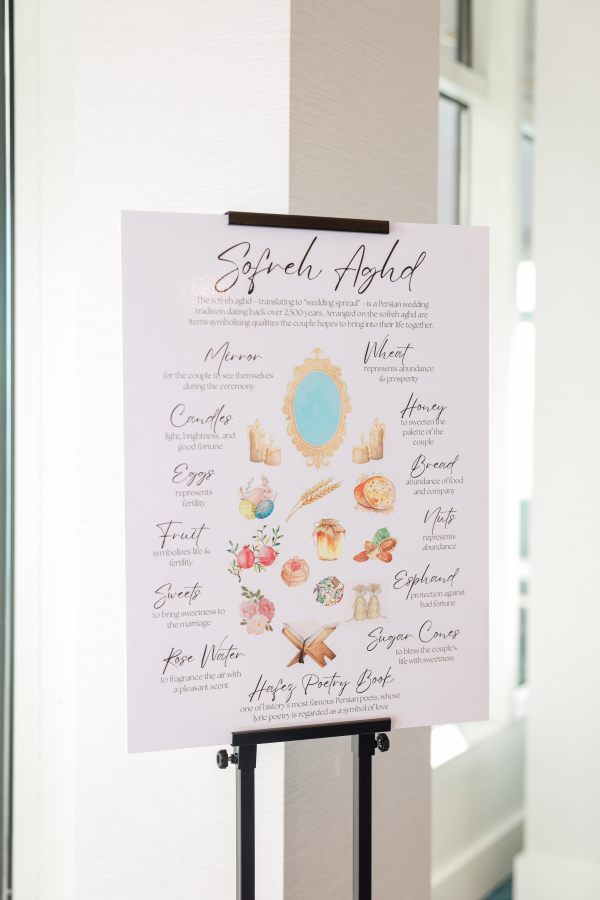 Sofreh Aghd
The sofreh aghd – translating to "wedding spread" – is a Persian wedding
tradition dating back over 2,500 years. Arranged on the sofreh aghd are
items symbolizing qualities the couple hopes to bring into their life together.
Mirror
for the couple to see themselves
during the ceremony
Candles
light, brightness, and
good fortune
Eggs
represents
fertility
Fruit
symbolizes life &
fertility
Sweets
to bring sweetness to
the marriage
Rose Water
to fragrance the air with
a pleasant scent
Wheat
represents abundance
& prosperity
Honey
to sweeten the
palette of the
couple
Bread
abundance of food
and company
Nuts
represents
abundance
Esphand
protection against
bad fortune
Sugar Cones
to bless the couple's
life with sweetness
Hafez Poetry Book
one of history's most famous Persian poets, whose
lyric poetry is regarded as a symbol of love